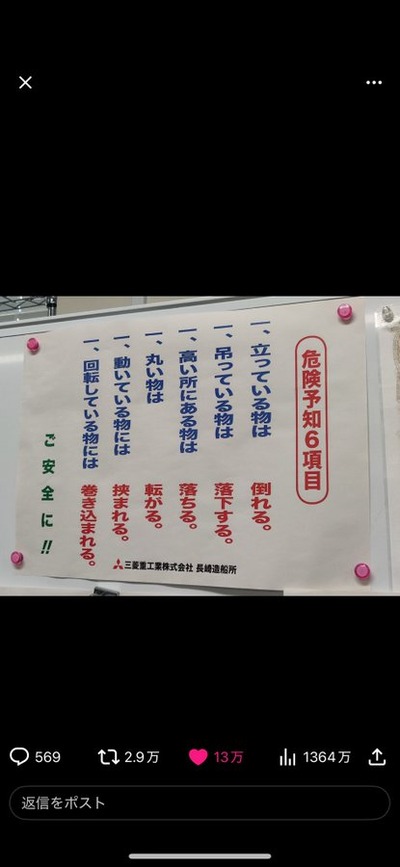 危険予知6項目
一、立っている物は 倒れる。
一、吊っている物は 落下する。
一、高い所にある物は 落ちる。
一、丸い物は 転がる。
一、動いている物には 挟まれる。
一、回転している物には 巻き込まれる。
ご安全に!!
三菱重工業株式会社 長崎造船所
569 2.9万 13万 1364万
返信をポスト